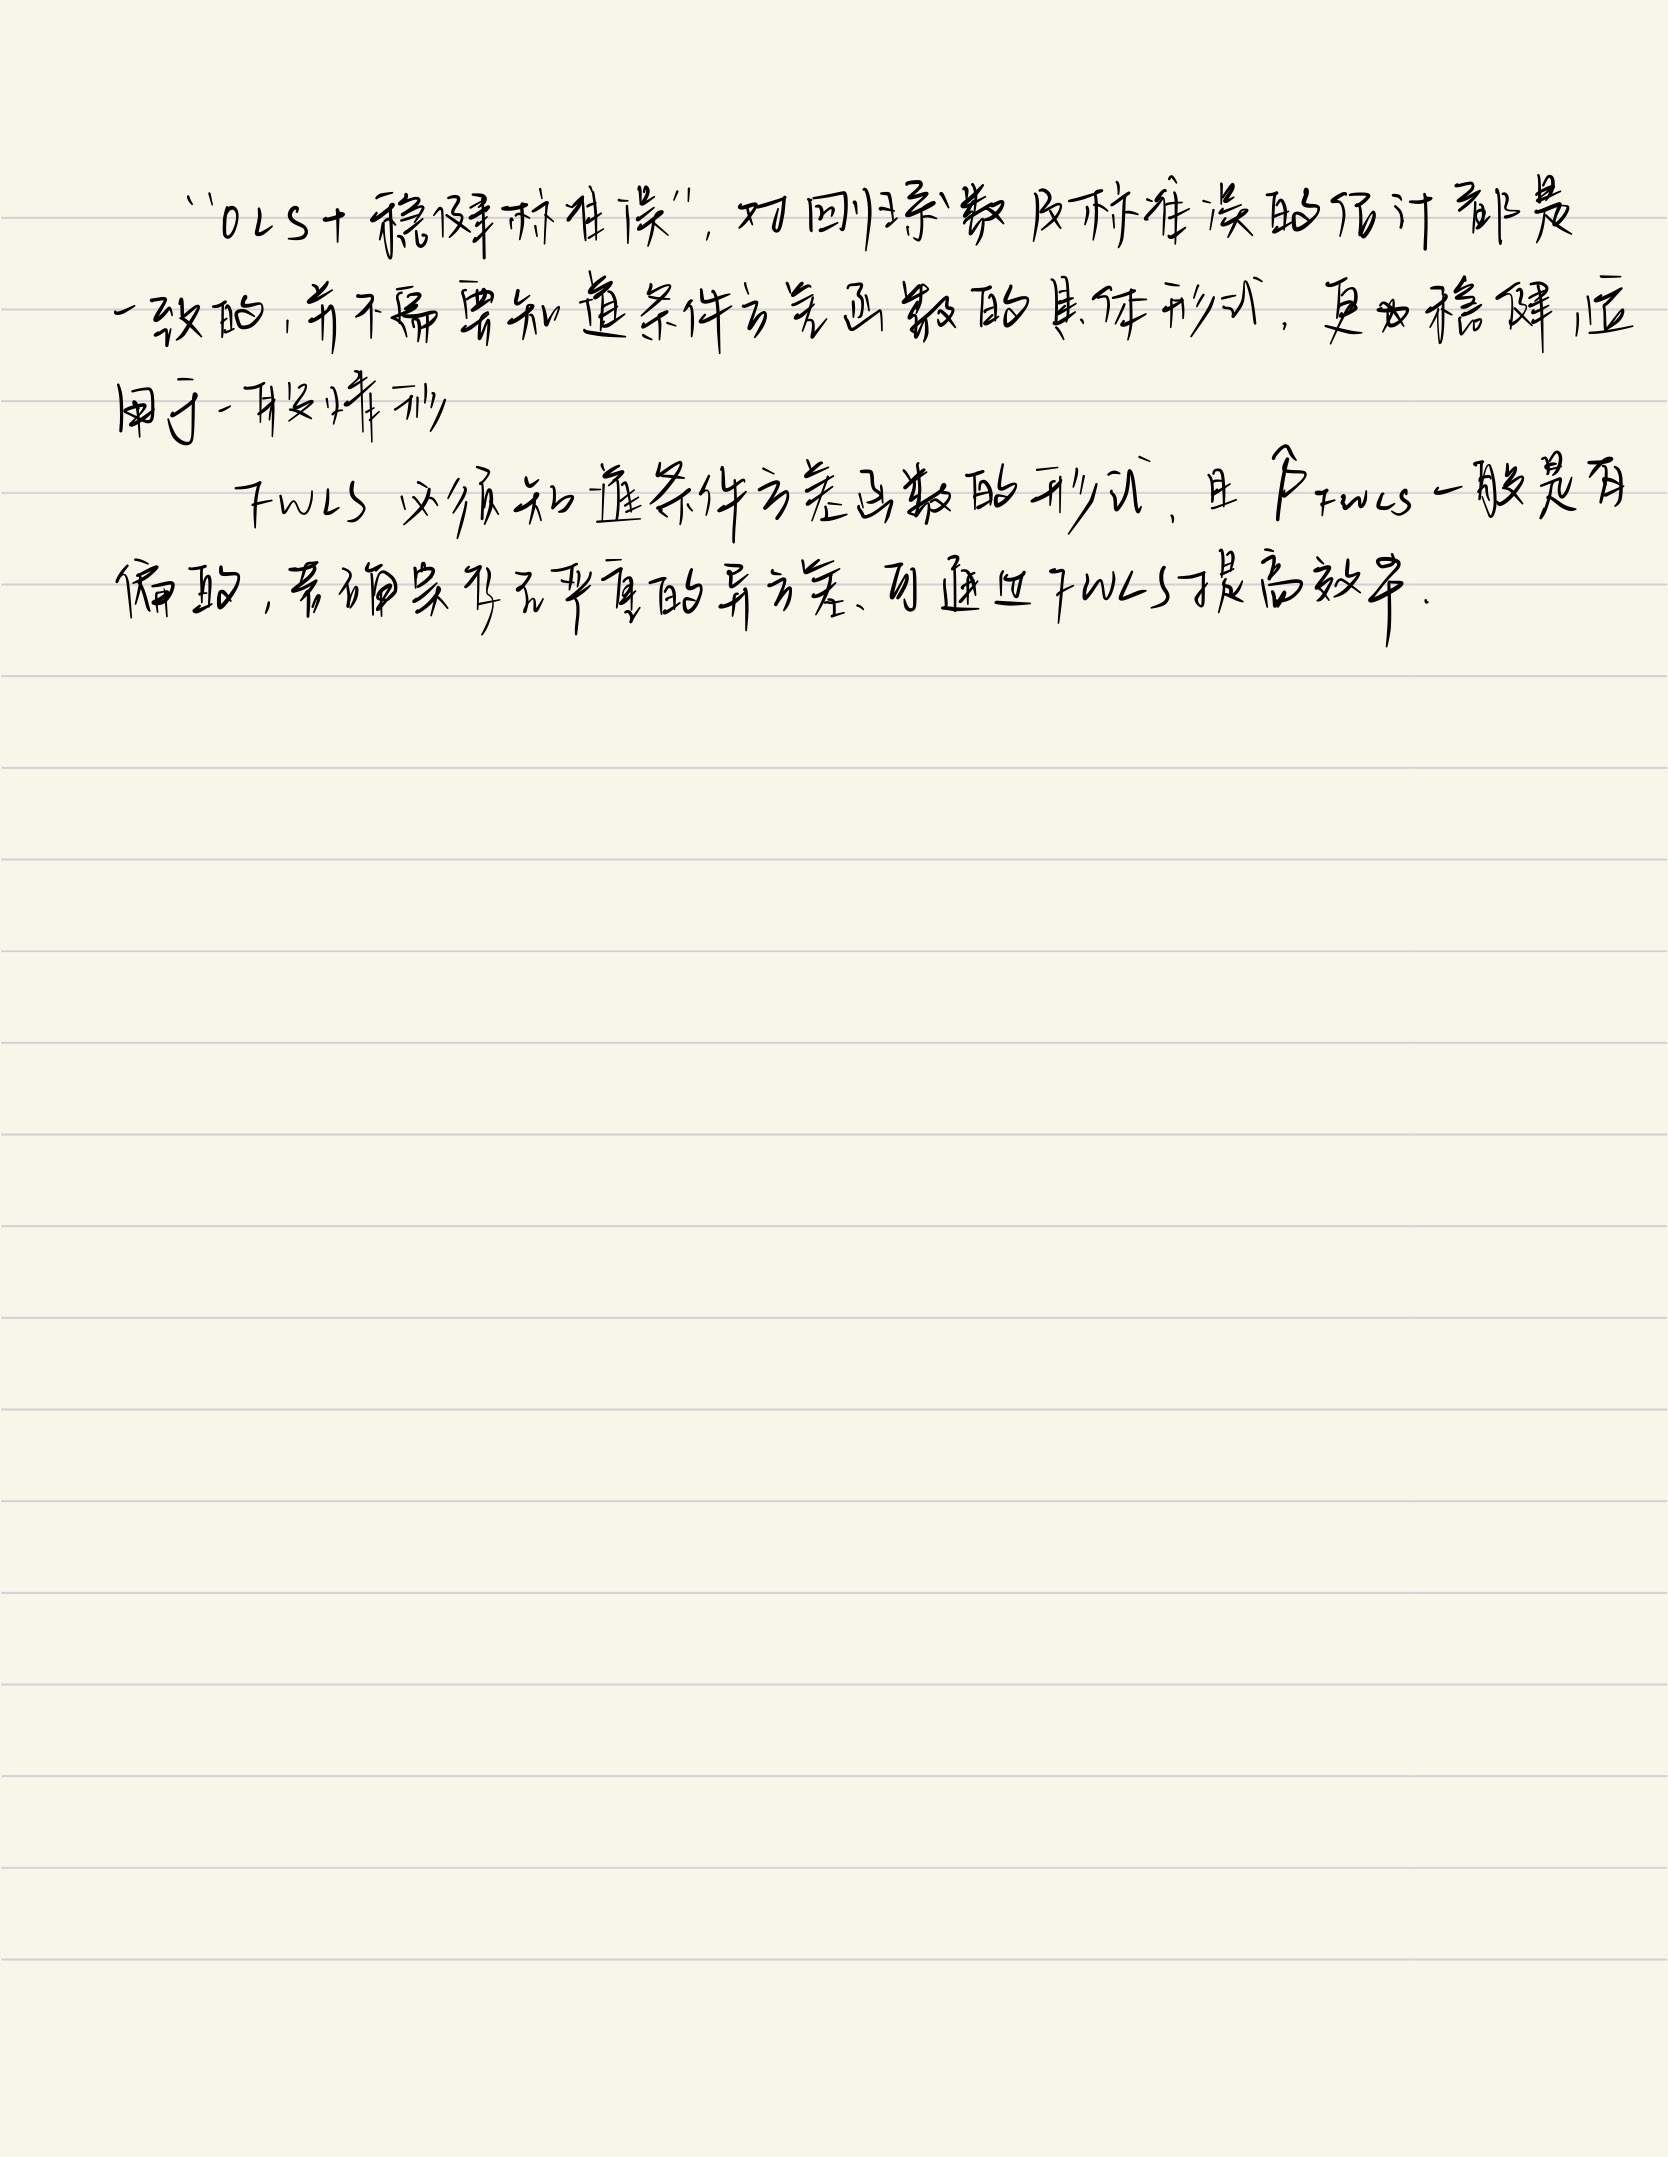 “OLS+稳健标准误”,对回归系数及标准误的估计都是
一致的,并不需要知道条件方差函数的具体形式,更为稳健,应
用于一般情形
FWLS 必须知道条件方差函数的形式,且 β̂FWLS 一般是有
偏的,若确实存在严重的异方差、可通过FWLS提高效率.